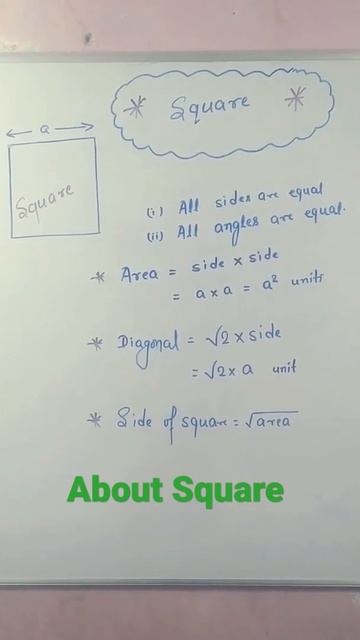 * Square *
a
Square
(i) All sides are equal
(ii) All angles are equal.
* Area = side × side
= a × a = a² units
* Diagonal = √2 × side
= √2 × a unit
* Side of square = √area
About Square